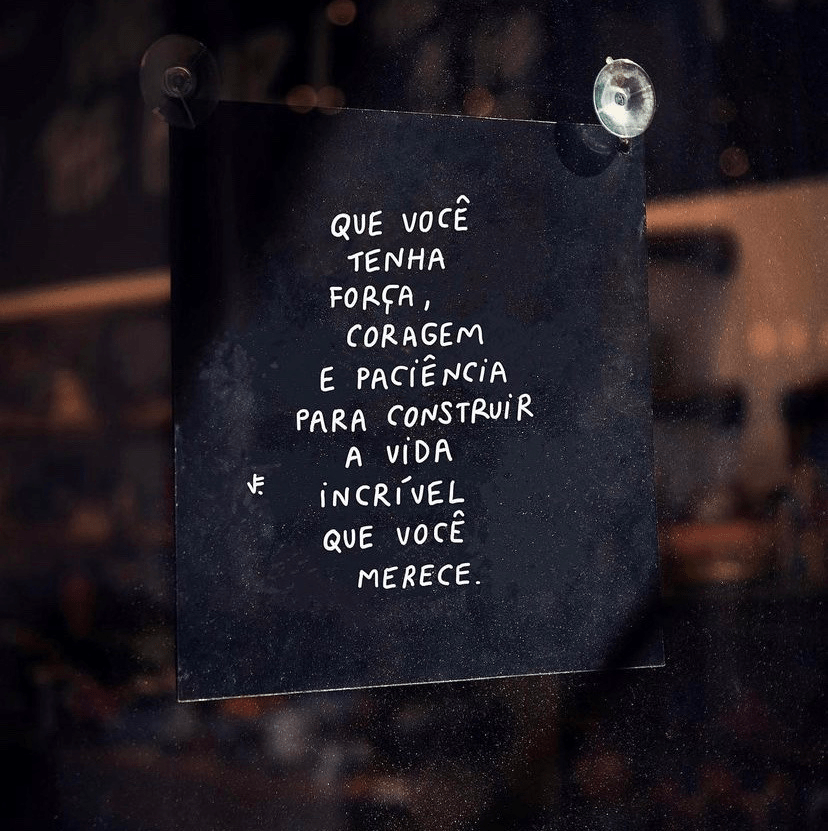 QUE VOCÊ
TENHA
FORÇA,
CORAGEM
E PACIÊNCIA
PARA CONSTRUIR
A VIDA
INCRÍVEL
QUE VOCÊ
MERECE.
VF.